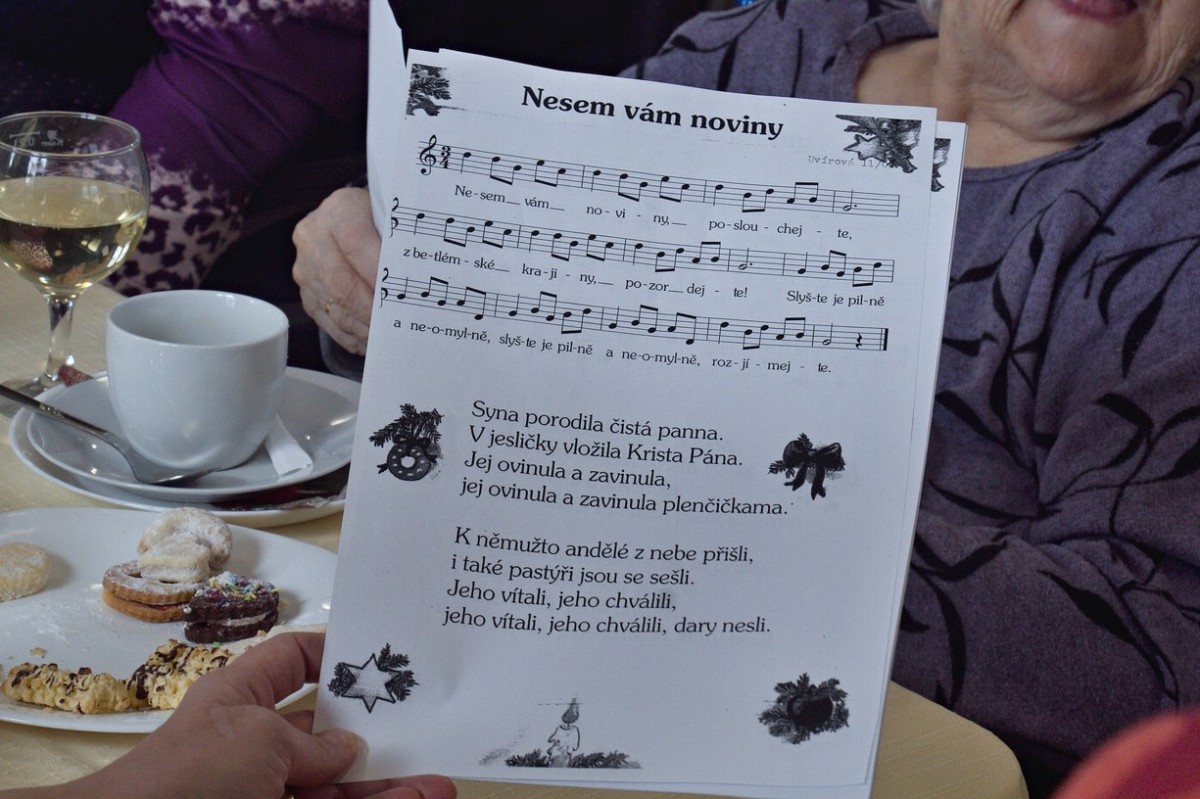 Nesem vám noviny
Uvírová 11/
3
4
Ne-sem__ vám__ no - vi - ny,__ po-slou - chej - te,
z be-tlém - ské__ kra-ji - ny,__ po-zor__ dej - te! Slyš-te je pil-ně
a ne-o-myl-ně, slyš-te je pil-ně a ne-o-myl-ně, roz-jí - mej - te.
Syna porodila čistá panna.
V jesličky vložila Krista Pána.
Jej ovinula a zavinula,
jej ovinula a zavinula plenčičkama.
K němužto andělé z nebe přišli,
i také pastýři jsou se sešli.
Jeho vítali, jeho chválili,
jeho vítali, jeho chválili, dary nesli.